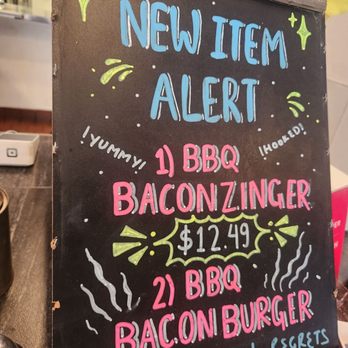 NEW ITEM
ALERT
!YUMMY!
!HOOKED!
1) BBQ
BACONZINGER
$12.49
2) BBQ
BACON BURGER
REGRETS